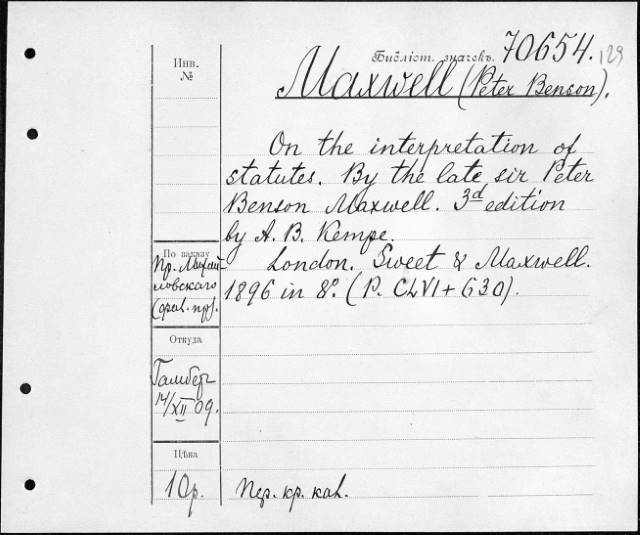 Библіот. значекъ. 70654. 129
Инв.
№
Maxwell (Peter Benson).
On the interpretation of
statutes. By the late sir Peter
Benson Maxwell. 3d edition
by A. B. Kempe.
London, Sweet & Maxwell.
1896 in 8°. (P. CLVI + 630).
По заказу
Пр. Михай-
ловскаго
Откуда
Гамберг
XII 09.
Цѣна
10р.
Пер. кр. кал.